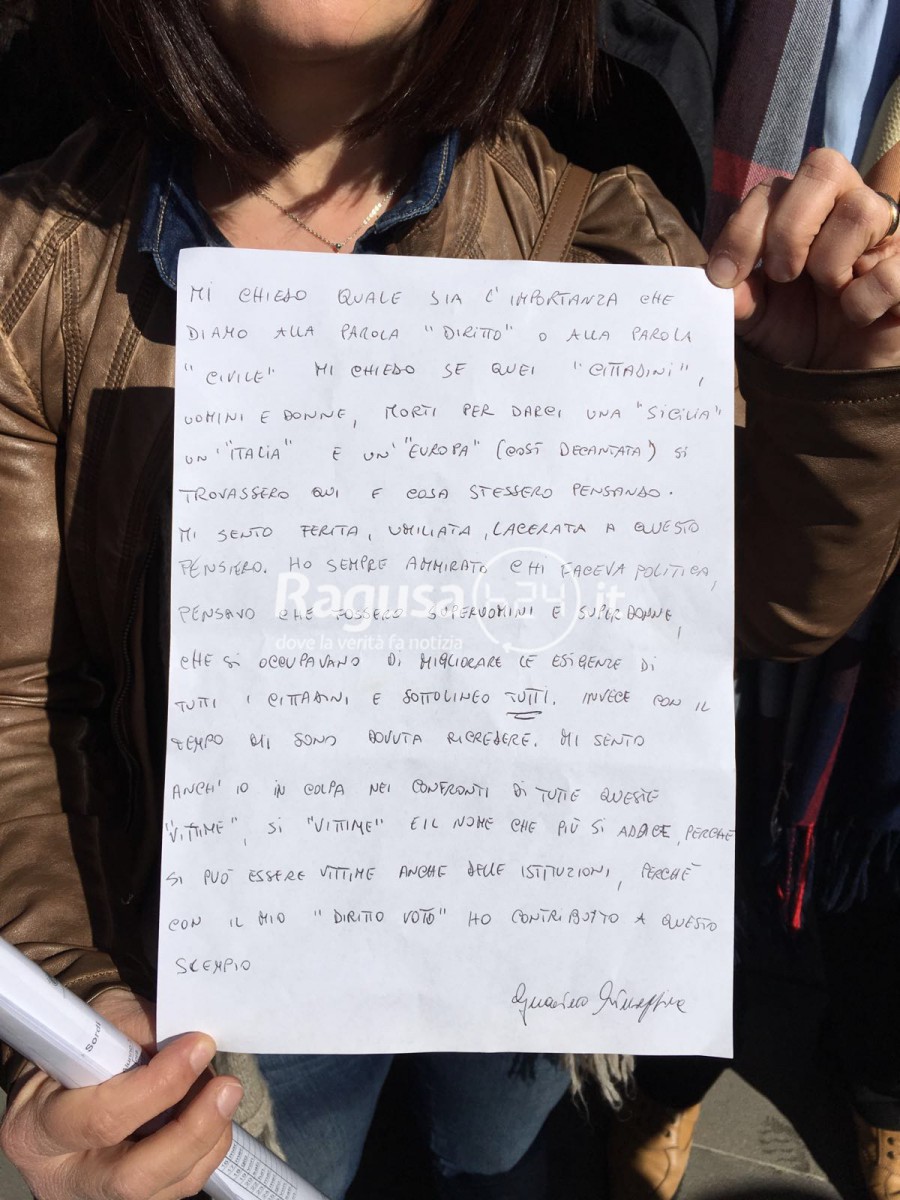 MI CHIEDO QUALE SIA L'IMPORTANZA CHE
DIAMO ALLA PAROLA "DIRITTO" O ALLA PAROLA
"CIVILE" MI CHIEDO SE QUEI "CITTADINI",
UOMINI E DONNE, MORTI PER DARCI UNA "SICILIA"
UN'"ITALIA" E UN'"EUROPA" (COSÌ DECANTATA) SI
TROVASSERO QUI E COSA STESSERO PENSANDO.
MI SENTO FERITA, UMILIATA, LACERATA A QUESTO
PENSIERO. HO SEMPRE AMMIRATO CHI FACEVA POLITICA,
PENSAVO CHE FOSSERO SUPERUOMINI E SUPERDONNE,
CHE SI OCCUPAVANO DI MIGLIORARE LE ESIGENZE DI
TUTTI I CITTADINI E SOTTOLINEO TUTTI. INVECE CON IL
TEMPO MI SONO DOVUTA RICREDERE. MI SENTO
ANCH'IO IN COLPA NEI CONFRONTI DI TUTTE QUESTE
"VITTIME", SI "VITTIME" E IL NOME CHE PIÙ SI ADDICE, PERCHÉ
SI PUÒ ESSERE VITTIME ANCHE DELLE ISTITUZIONI, PERCHÈ
CON IL MIO "DIRITTO VOTO" HO CONTRIBUITO A QUESTO
SCEMPIO
Giuseppina
Ragusa h24.it
dove la verità fa notizia
Sordi